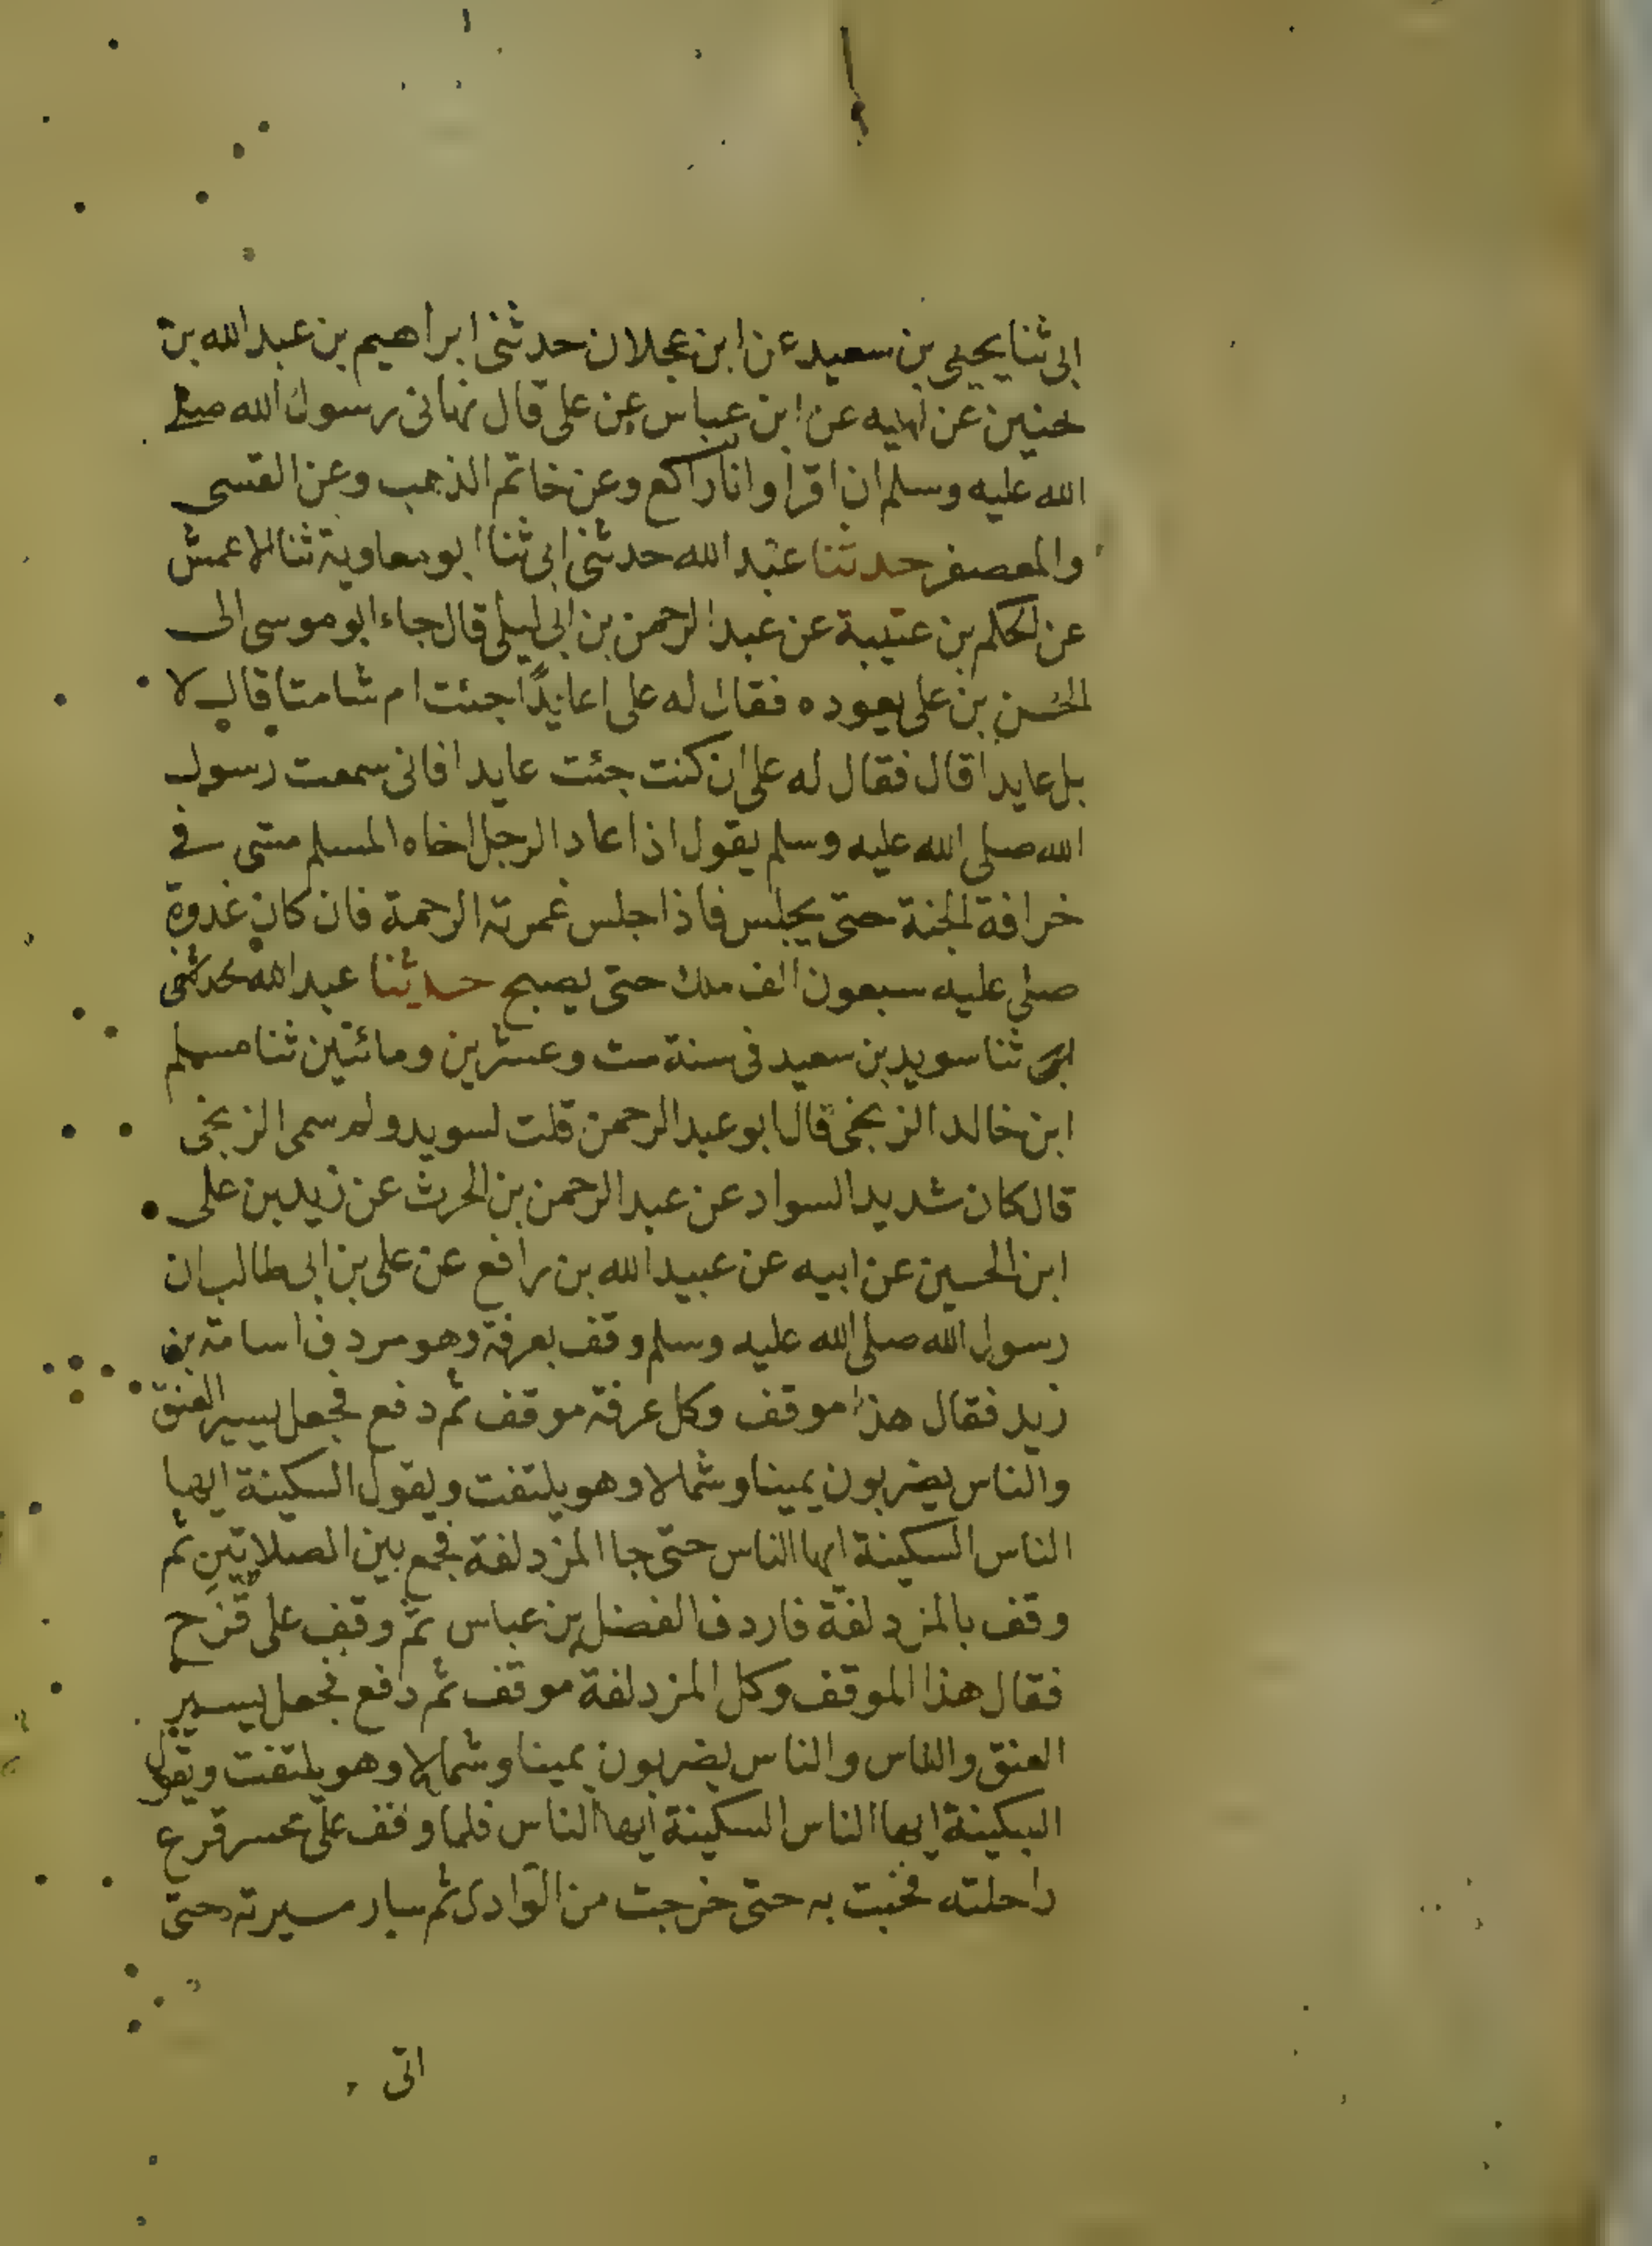 ابى ثنا يحيى بن سعيد عن ابن عجلان حدثنى ابراهيم بن عبد الله بن
حنين عن ابيه عن ابن عباس عن على قال نهانى رسول الله صلى
الله عليه وسلم ان اقرا وانا راكع وعن خاتم الذهب وعن القسى
والمعصفر حدثنا عبد الله حدثنى ابى ثنا ابو معاوية ثنا الاعمش
عن الحكم بن عتيبة عن عبد الرحمن بن ابى ليلى قال جاء ابو موسى الى
الحسن بن على يعوده فقال له على اعايدًا جئت ام شامتا قال لا
بل عايدا قال فقال له على ان كنت جئت عايدا فانى سمعت رسول
الله صلى الله عليه وسلم يقول اذا عاد الرجل اخاه المسلم مشى فى
خرافة الجنة حتى يجلس فاذا جلس غمرته الرحمة فان كان غدوة
صلى عليه سبعون الف ملك حتى يصبح حديثنا عبد الله حدثنى
ابى ثنا سويد بن سعيد فى سنة ست وعشرين ومائتين ثنا مسلم
ابن خالد الزنجى قال ابو عبد الرحمن قلت لسويد ولم سمى الزنجى
قال كان شديد السواد عن عبد الرحمن بن الحرث عن زيد بن على
ابن الحسين عن ابيه عن عبيد الله بن رافع عن على بن ابى طالب ان
رسول الله صلى الله عليه وسلم وقف بعرفة وهو مردف اسامة بن
زيد فقال هذا موقف وكل عرفة موقف ثم دفع فجعل يسير العنق
والناس يضربون يمينا وشمالا وهو يلتفت ويقول السكينة ايها
الناس السكينة ايها الناس حتى جا المزدلفة فجمع بين الصلاتين ثم
وقف بالمزدلفة فاردف الفضل بن عباس ثم وقف على قزح
فقال هذا الموقف وكل المزدلفة موقف ثم دفع فجعل يسير
العنق والناس والناس يضربون يمينا وشمالا وهو يلتفت ويقول
السكينة ايها الناس السكينة ايها الناس فلما وقف على محسر قرع
راحلته فخبت به حتى خرجت من الوادى ثم سار مسيرته حتى
اتى